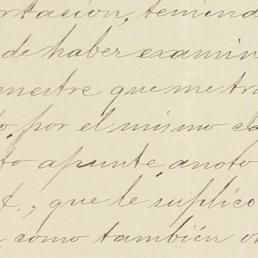 rtación, teniend
de haber examin
mestre que me tra
o, por el mismo ca
to apunte, anoto
¢., que le suplico
como también o